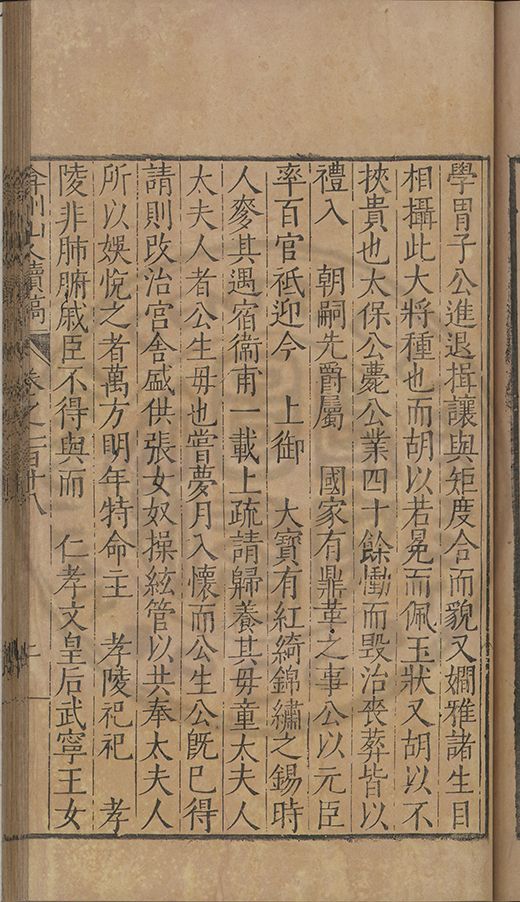 學胄子公進退揖讓與矩度合而貌又嫺雅諸生目
相攝此大將種也而胡以若冕而佩玉狀又胡以不
挾貴也太保公薨公業四十餘慟而毀治喪葬皆以
禮入 朝嗣先爵屬 國家有鼎革之事公以元臣
率百官祗迎今 上御 大寶有紅綺錦繡之錫時
人豔其遇宿衞甫一載上疏請歸養其母童太夫人
太夫人者公生母也嘗夢月入懷而公生公旣已得
請則改治官舍盛供張女奴操絃管以共奉太夫人
所以娛悅之者萬方明年特命主 孝陵祀祀 孝
陵非肺腑戚臣不得與而 仁孝文皇后武寧王女
弇州山人續稿 卷之一百廿八 上